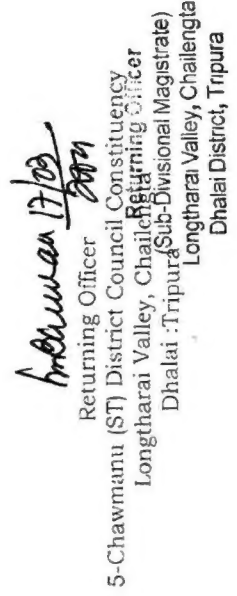 17/03
2021
Returning Officer
5-Chawmanu (ST) District Council Constituency
Longtharai Valley, Chailengta
Dhalai :Tripura
Returning Officer
(Sub-Divisional Magistrate)
Longtharai Valley, Chailengta
Dhalai District, Tripura